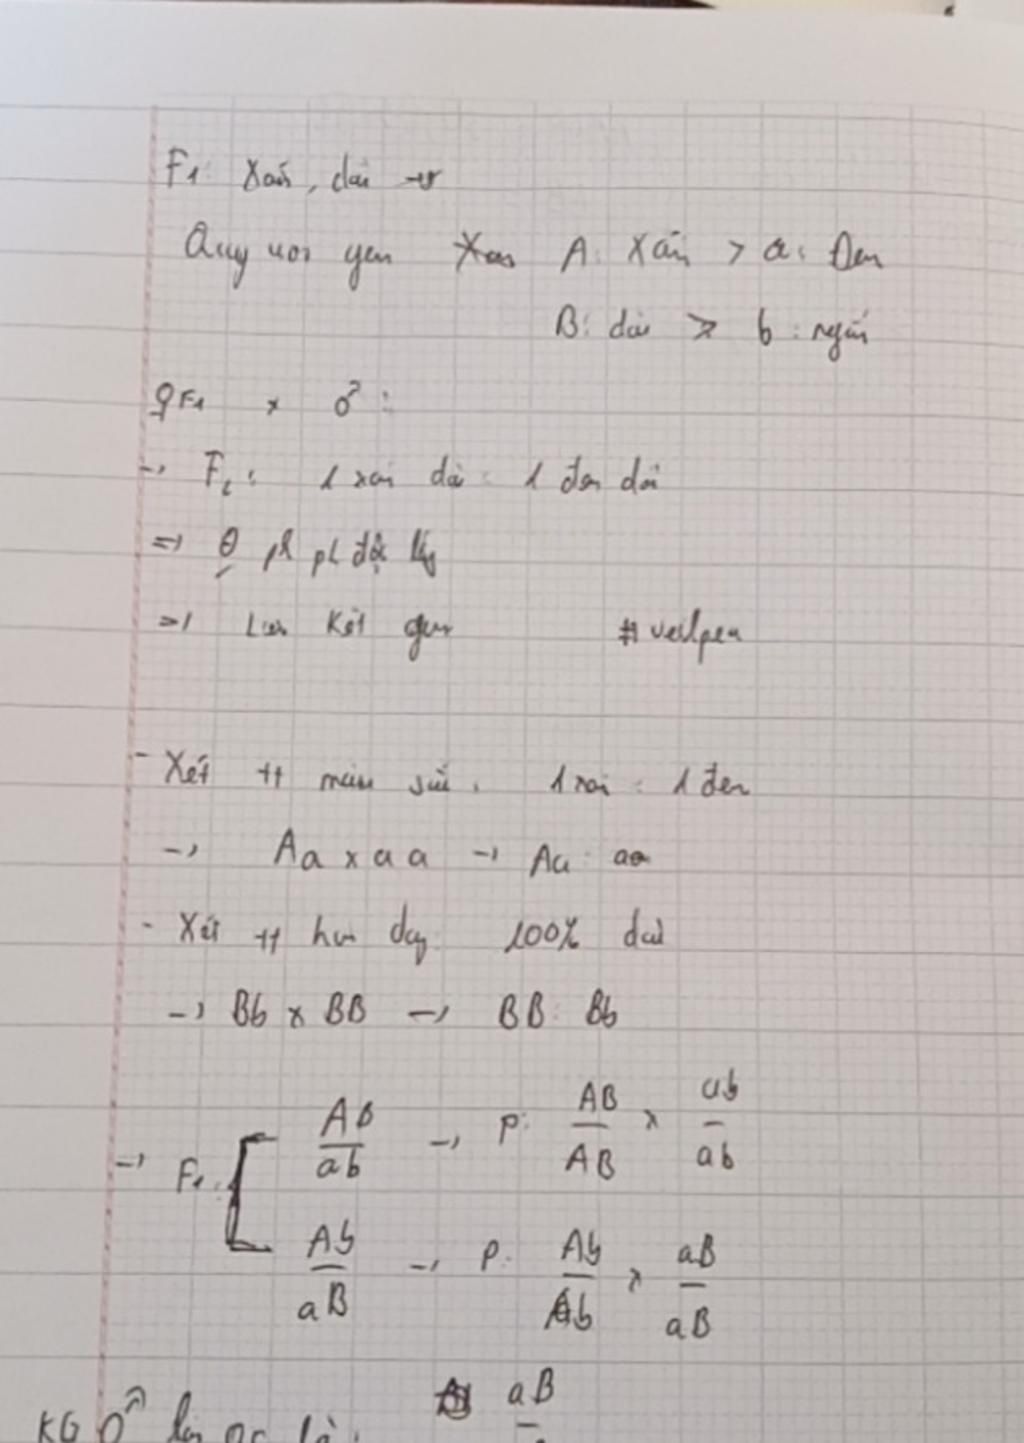 F1: Xám, dài →
Quy ước gen A: Xám > a: Đen
B: dài > b: ngắn
♀F1 x ♂:
→ F2: 1 xám dài : 1 đen dài
=> pl độc lập
=> Liên kết gen #veilpea
- Xét tt màu sắc: 1 xám : 1 đen
→ Aa x aa → Aa : aa
- Xét tt hình dạng: 100% dài
→ Bb x BB → BB : Bb
→ F1: AB/ab → P: AB/AB x ab/ab
Ab/aB → P: Ab/Ab x aB/aB
aB
KG ♂ là: